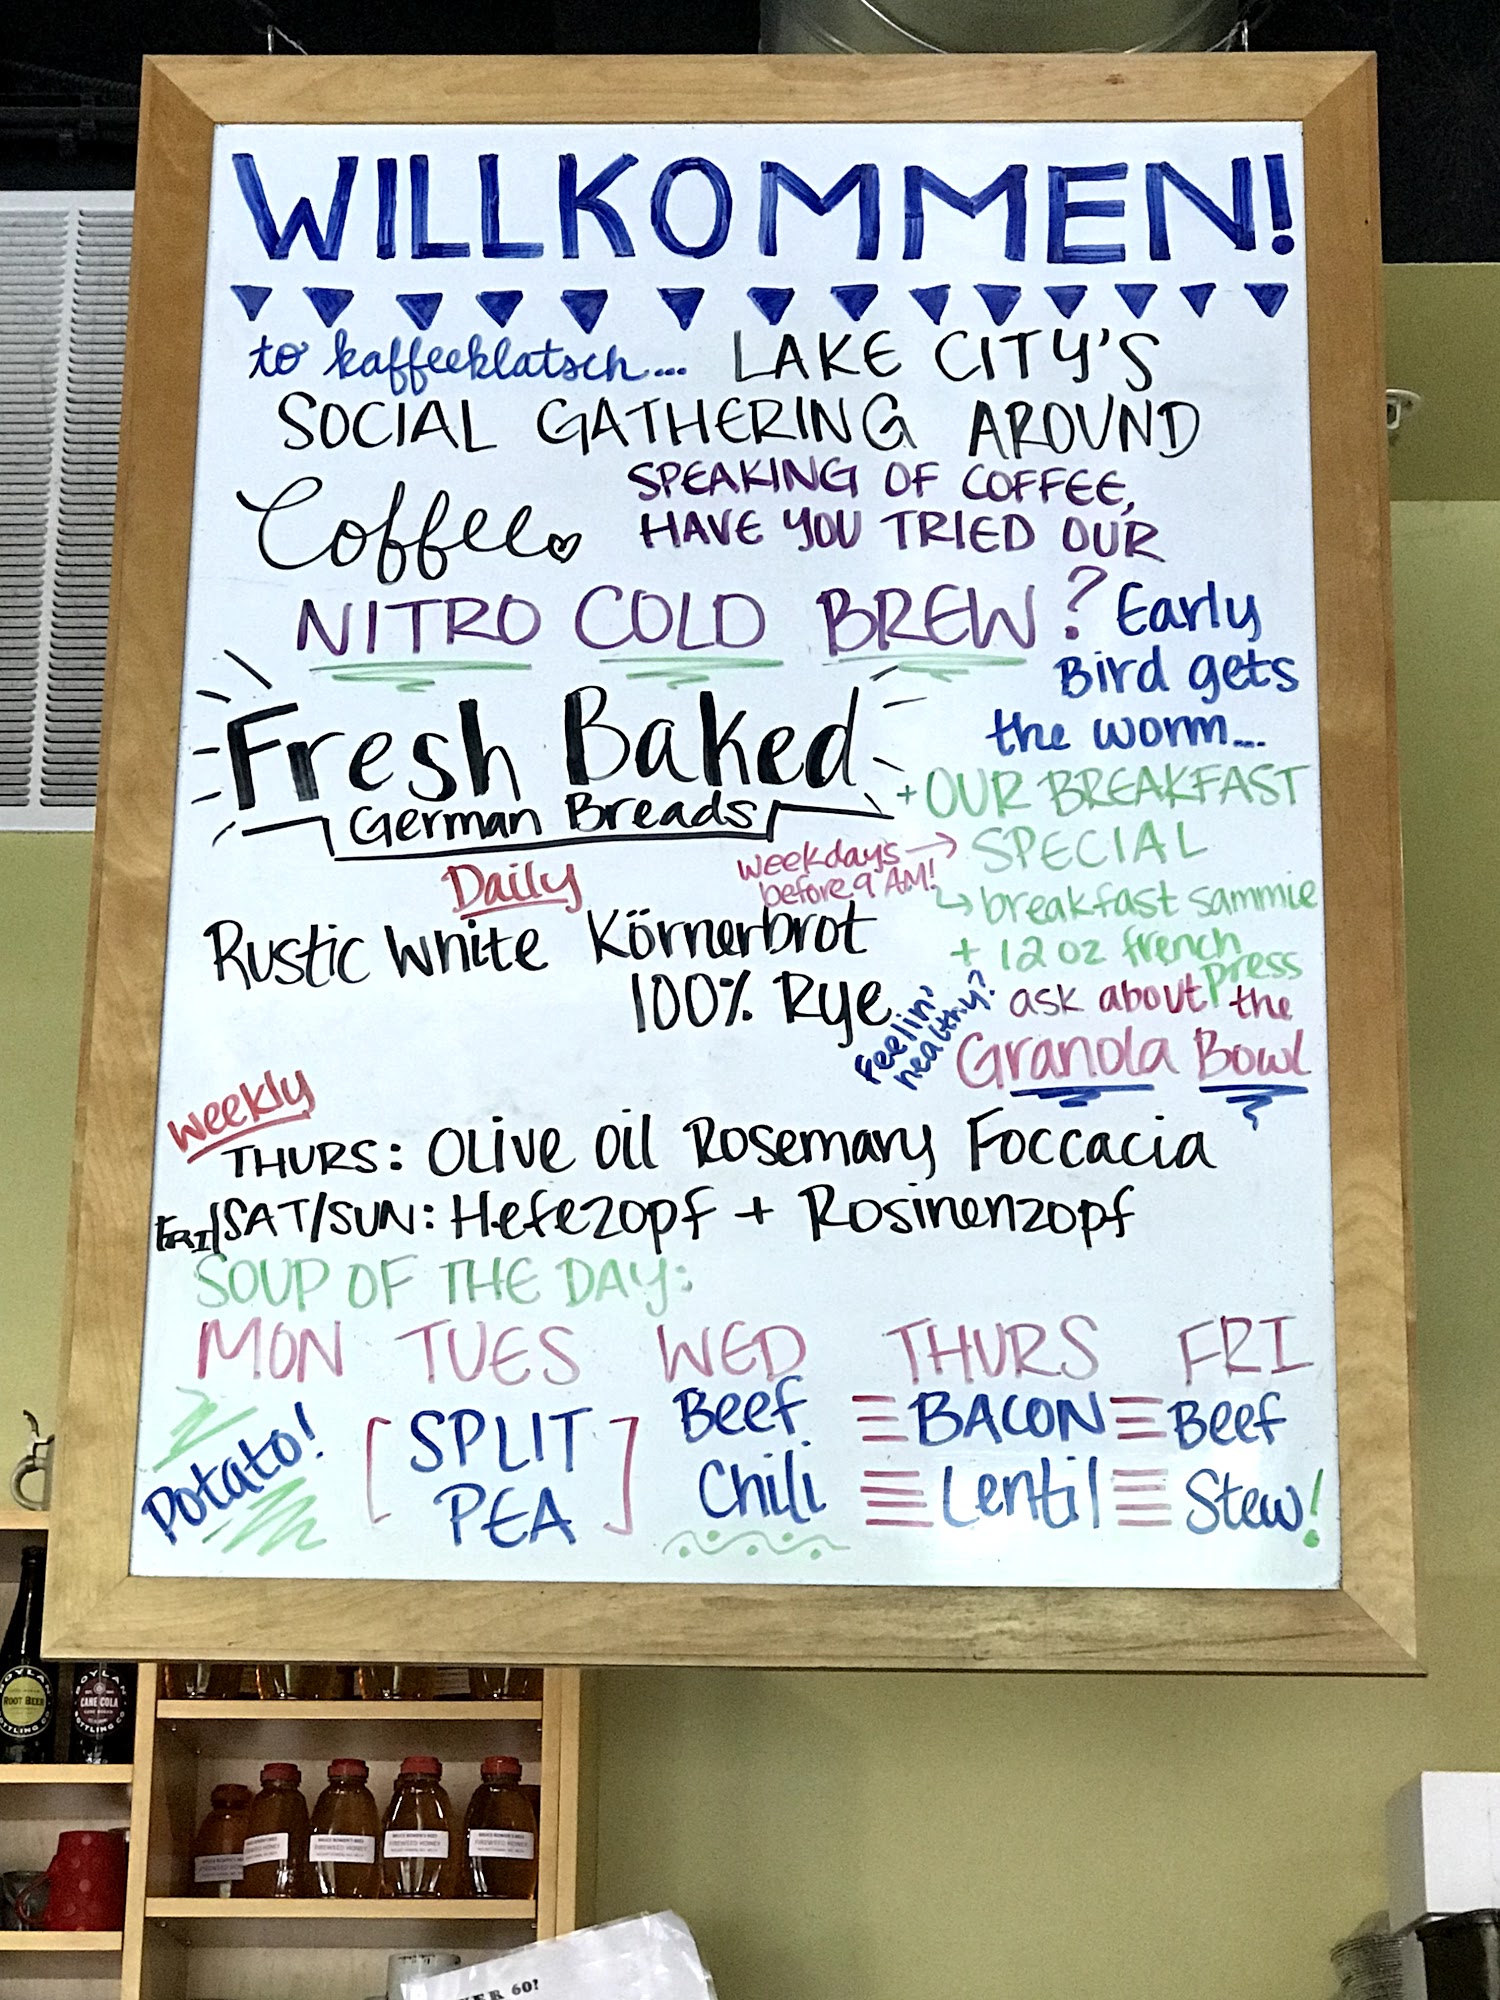 WILLKOMMEN!
to kaffeeklatsch... LAKE CITY'S
SOCIAL GATHERING AROUND
Coffee
SPEAKING OF COFFEE,
HAVE YOU TRIED OUR
NITRO COLD BREW?
Early
Bird gets
the worm...
+ OUR BREAKFAST
SPECIAL
weekdays
before 9 AM!
breakfast sammie
+ 12 oz french
press
Fresh Baked
German Breads
Daily
Rustic White Körnerbrot
100% Rye
Feelin'
healthy?
ask about the
Granola Bowl
Weekly
THURS: Olive Oil Rosemary Foccacia
FRI/SAT/SUN: Hefezopf + Rosinenzopf
SOUP OF THE DAY:
MON TUES WED THURS FRI
Potato!
[SPLIT
PEA]
Beef
Chili
BACON
Lentil
Beef
Stew!
BOYLAN
ROOT BEER
BOTTLING CO
BOYLAN
CANE COLA
BOTTLING CO
FIREWEED HONEY
FIREWEED HONEY
FIREWEED HONEY
60?